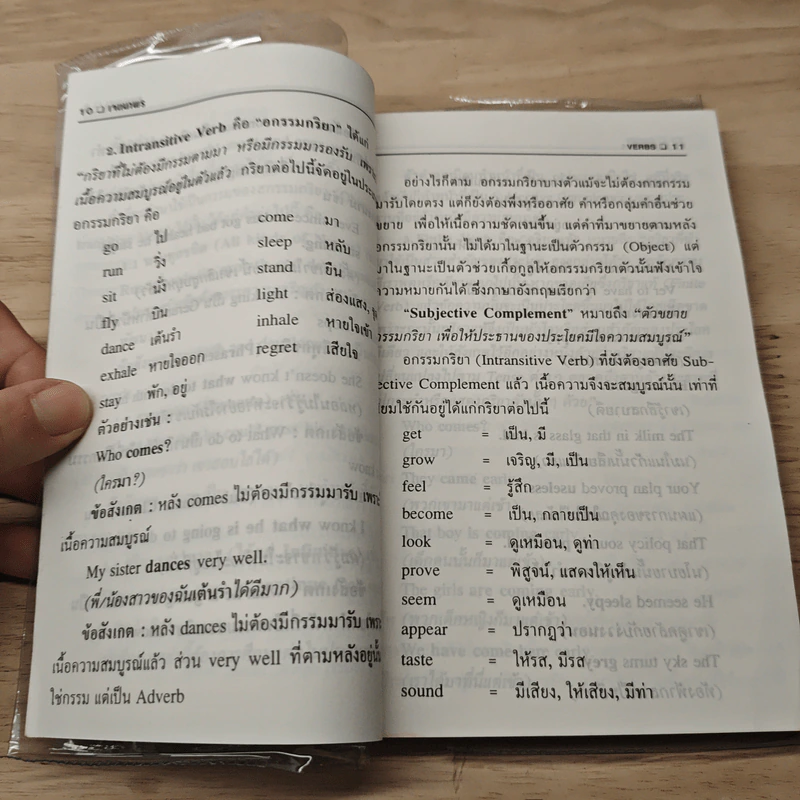 10 ❏
2. Intransitive Verb คือ “อกรรมกริยา” ได้แก่
“กริยาที่ไม่ต้องมีกรรมตามมา หรือมีกรรมมารองรับ เพราะ
เนื้อความสมบูรณ์อยู่ในตัวแล้ว กริยาต่อไปนี้จัดอยู่ใน
อกรรมกริยา คือ
go ไป come มา
run วิ่ง sleep หลับ
sit นั่ง stand ยืน
fly บิน light ส่องแสง,
dance เต้นรำ inhale หายใจเข้า
exhale หายใจออก regret เสียใจ
stay พัก, อยู่
ตัวอย่างเช่น :
Who comes?
(ใครมา?)
ข้อสังเกต : หลัง comes ไม่ต้องมีกรรมมารับ เพราะ
เนื้อความสมบูรณ์
My sister dances very well.
(พี่/น้องสาวของฉันเต้นรำได้ดีมาก)
ข้อสังเกต : หลัง dances ไม่ต้องมีกรรมมารับ เพราะ
เนื้อความสมบูรณ์แล้ว ส่วน very well ที่ตามหลังอยู่นั้น
ใช่กรรม แต่เป็น Adverb
VERBS ❏ 11
อย่างไรก็ตาม อกรรมกริยาบางตัวแม้จะไม่ต้องการกรรม
มารับโดยตรง แต่ก็ยังต้องพึ่งหรืออาศัย คำหรือกลุ่มคำอื่นช่วย
ขยาย เพื่อให้เนื้อความชัดเจนขึ้น แต่คำที่มาขยายตามหลัง
อกรรมกริยานั้น ไม่ได้มาในฐานะเป็นตัวกรรม (Object) แต่
มาในฐานะเป็นตัวช่วยเกื้อกูลให้อกรรมกริยาตัวนั้นฟังเข้าใจ
ความหมายกันได้ ซึ่งภาษาอังกฤษเรียกว่า
“Subjective Complement” หมายถึง “ตัวขยาย
กรรมกริยา เพื่อให้ประธานของประโยคมีใจความสมบูรณ์”
อกรรมกริยา (Intransitive Verb) ที่ยังต้องอาศัย Sub-
jective Complement แล้ว เนื้อความจึงจะสมบูรณ์นั้น เท่าที่
ยมใช้กันอยู่ได้แก่กริยาต่อไปนี้
get = เป็น, มี
grow = เจริญ, มี, เป็น
feel = รู้สึก
become = เป็น, กลายเป็น
look = ดูเหมือน, ดูท่า
prove = พิสูจน์, แสดงให้เห็น
seem = ดูเหมือน
appear = ปรากฏว่า
taste = ให้รส, มีรส
sound = มีเสียง, ให้เสียง, มีท่า